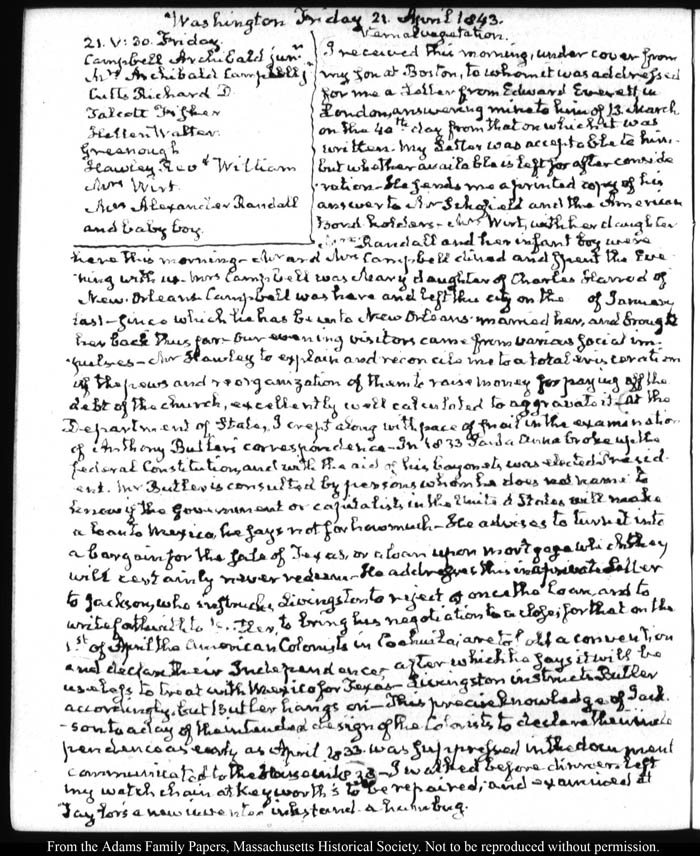 Washington Friday 21. April 1843.
21. V:30. Friday.
Campbell Archibald junr
Mrs Archibald Campbell j
Cutts Richard D.
Falcott Fisher
Hellen Walter.
Greenough
Hawley Revd William
Mrs Wirt.
Mrs Alexander Randall
and baby boy.
Vernal vegetation.
I received this morning, under cover from
my son at Boston, to whom it was addressed
for me a Letter from Edward Everett in
London, answering mine to him of 13. March
on the 40th day from that on which it was
written. My Letter was acceptable to him.
but whether available is left for after conside
-ration. He sends me a printed copy of his
answer to Mr Schofield and the American
Bond holders. Mrs Wirt, with her daughter
Mrs Randall and her infant boy were
here this morning. Mr and Mrs Campbell dined and spent the Eve
-ning with us. Mrs Campbell was Mary daughter of Charles Harrod of
New. Orleans. Campbell was here and left this city on the of January
last. since which he has been to New Orleans. married her, and brought
her back thus far. Our evening visitors came from various social im-
pulses. Mr Hawley to explain and reconcile me to a total evisceration
of the pews and reorganization of them to raise money for paying off the
debt of the church, excellently well calculated to aggravate it. At the
Department of State, I crept along with pace of snail in the examination
of Anthony Butler's correspondence. In 1833 Santa Anna broke up the
federal Constitution, and with the aid of his bayonets was elected Presid
-ent. Mr Butler is consulted by persons whom he does not name to
know if the Government or capitalists in the United States will make
a loan to Mexico, he says not for how much. He advises to turn it into
a bargain for the sale of Texas, or a loan upon mortgage which they
will certainly never redeem. He addresses this in a private Letter
to Jackson, who instructs Livingston to reject at once the loan, and to
write forthwith to Butler, to bring his negotiation to a close, for that on the
1.st of April the American Colonists in Coahuila, are to hold a convention
and declare their Independence, after which he says it will be
useless to treat with Mexico for Texas. Livingston instructs Butler
accordingly, but Butler hangs on. This precise knowledge of Jack
-son to a day of the intended design of the Colonists to declare their inde
pendence as early as April 1833. was suppressed in the document
communicated to the House in 1838. I walked before dinner. left
my watch chain at Keyworth's to be repaired, and examined at
Taylor's a new invented inkstand. a humbug.
From the Adams Family Papers, Massachusetts Historical Society. Not to be reproduced without permission.